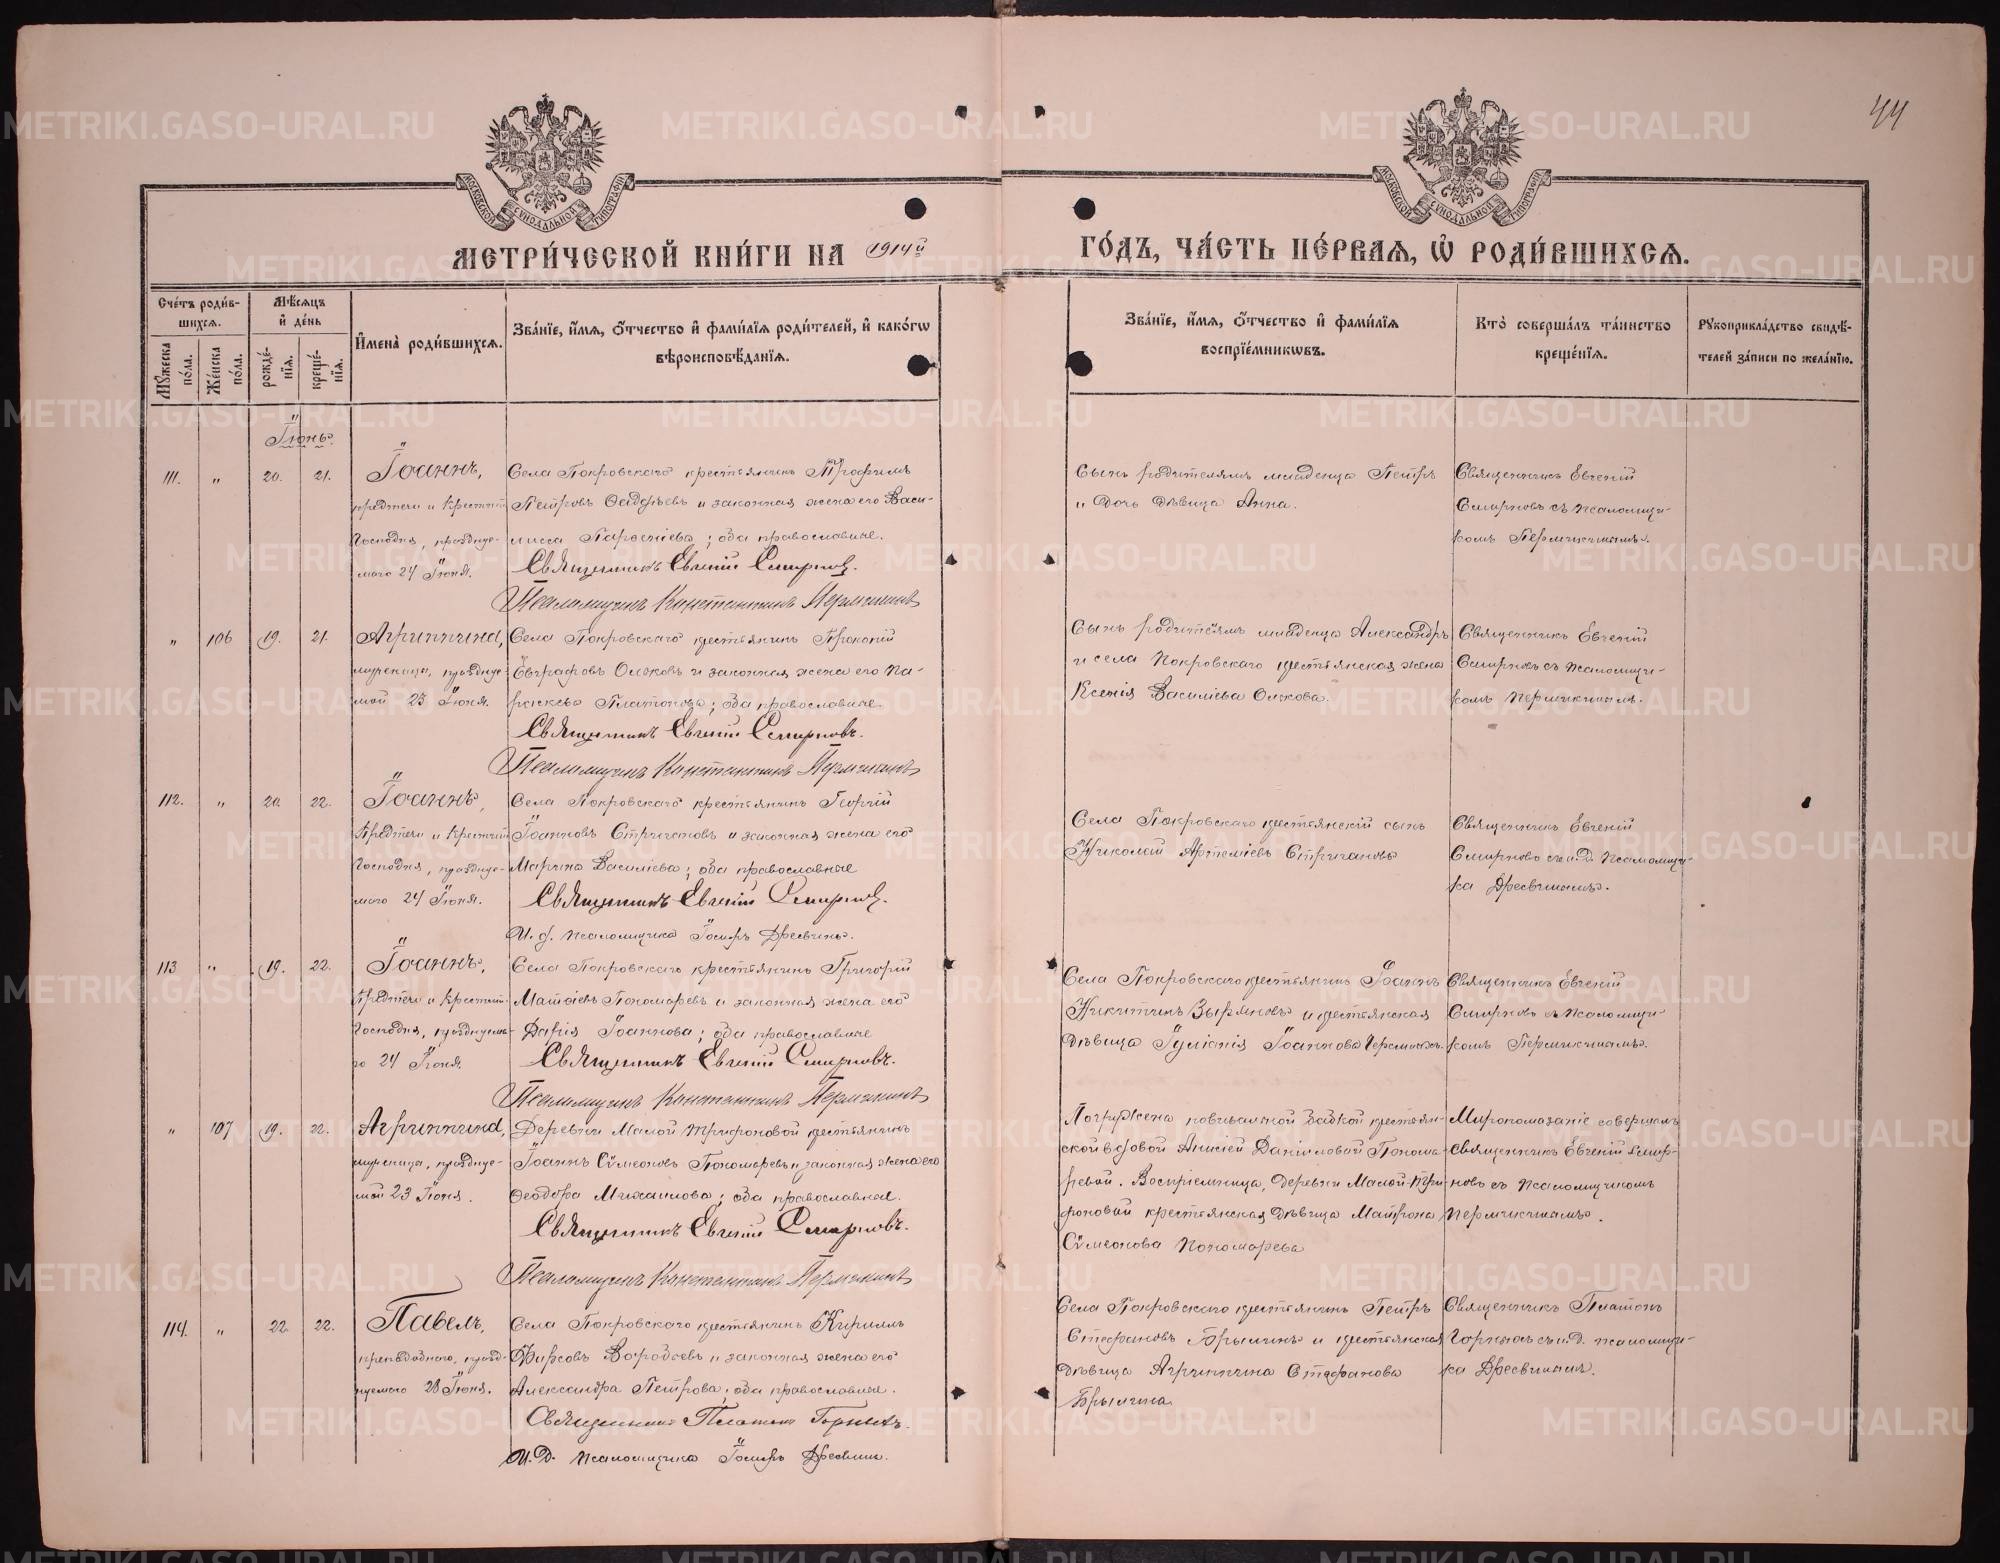 44
МОСКОВСКОЙ СѴНОДАЛЬНОЙ ТИПОГРАФІИ
МОСКОВСКОЙ СѴНОДАЛЬНОЙ ТИПОГРАФІИ
МЕТРИ́ЧЕСКОЙ КНИ́ГИ НА 1914й ГО́ДЪ, ЧА́СТЬ ПЕ́РВАѦ, Ѡ҆ РОДИ́ВШИХСѦ.
Сче́тъ роди́в-
шихсѧ.
Мꙋ́жеска по́ла.
Же́нска по́ла.
Мѣ́сѧцъ и҆ де́нь
рожде́-
нїѧ.
креще́-
нїѧ.
И҆мена̀ роди́вшихсѧ.
Зва́нїе, и҆́мѧ, ѻ҆́тчество и҆ фами́лїѧ роди́телей, и҆ како́гѡ
вѣроисповѣ́данїѧ.
Зва́нїе, и҆́мѧ, ѻ҆́тчество и҆ фами́лїѧ
воспрїе́мникѡвъ.
Кто̀ соверша́лъ та́инство
креще́нїѧ.
Рꙋкоприкла́дство свидѣ́-
телей за́писи по жела́нїю.
Іюнь.
111. " 20. 21. Іоаннъ,
Предтечи и Крестит.
Господня, празднуе-
маго 24 Іюня.
Села Покровскаго крестьянинъ Трофимъ
Петровъ и законная жена его Васи-
лисса ; оба православные.
Священникъ Евгеній Смирновъ.
Псаломщикъ Константинъ Пермикинъ
Сынъ родителямъ младенца Петръ
и дочь дѣвица Анна.
Священникъ Евгеній
Смирновъ съ псаломщи-
комъ Пермикинымъ.
" 106 19. 21. Агриппина,
мученица, празднуе-
мой 23 Іюня.
Села Покровскаго крестьянинъ Прокопій
Евграфовъ и законная жена его Па-
раскева Платонова; оба православные.
Священникъ Евгеній Смирновъ.
Псаломщикъ Константинъ Пермикинъ
Сынъ родителямъ младенца Александръ
и села Покровскаго крестьянская жена
Ксенія Васильева
Священникъ Евгеній
Смирновъ съ псаломщи-
комъ Пермикинымъ.
112. " 20. 22. Іоаннъ,
Предтечи и Крестит.
Господня, празднуе-
маго 24 Іюня.
Села Покровскаго крестьянинъ Георгій
Іоанновъ Стригановъ и законная жена его
Марина Василіева; оба православные
Священникъ Евгеній Смирновъ.
И. д. псаломщика Іосифъ Дресвинъ.
Села Покровскаго крестьянскій сынъ
Николай Артеміевъ Стригановъ
Священникъ Евгеній
Смирновъ съ и.д. псаломщи-
ка Дресвинымъ.
113 " 19. 22. Іоаннъ,
Предтечи и Крестит.
Господня, празднуема-
го 24 Іюня.
Села Покровскаго крестьянинъ Григорій
Матѳіевъ Пономаревъ и законная жена его
Дарія Іоаннова; оба православные
Священникъ Евгеній Смирновъ.
Псаломщикъ Константинъ Пермикинъ
Села Покровскаго крестьянинъ Іоаннъ
Никитинъ Зыряновъ и крестьянская
дѣвица Іуліанія Іоаннова
Священникъ Евгеній
Смирновъ съ псаломщи-
комъ Пермикинымъ.
" 107 19. 22. Агриппина,
мученица, празднуе-
мой 23 Іюня.
Деревни Малой Трифоновой крестьянинъ
Іоаннъ Сѵмеоновъ Пономаревъ и законная жена его
Ѳеодора Михаилова; оба православные.
Священникъ Евгеній Смирновъ.
Псаломщикъ Константинъ Пермикинъ
Погружена повивальной бабкой крестьян-
ской вдовой Анисіей Даніиловой Понома-
ревой. Воспріемница, деревни Малой-Три-
фоновой крестьянская дѣвица Матрона
Сѵмеонова Пономарева
Мѵропомазаніе совершалъ
священникъ Евгеній Смир-
новъ съ псаломщикомъ
Пермикинымъ.
114. " 22. 22. Павелъ,
преподобнаго, празд-
нуемаго 28 Іюня.
Села Покровскаго крестьянинъ Кириллъ
Фирсовъ Воробьевъ и законная жена его
Александра Петрова; оба православные.
Священникъ Платонъ Горныхъ.
И. Д. псаломщика Іосифъ Дресвинъ.
Села Покровскаго крестьянинъ Петръ
Стефановъ Брылинъ и крестьянская
дѣвица Агриппина Стефанова
Брылина
Священникъ Платонъ
Горныхъ съ и.д. псаломщи-
ка Дресвинымъ.
METRIKI.GASO-URAL.RU